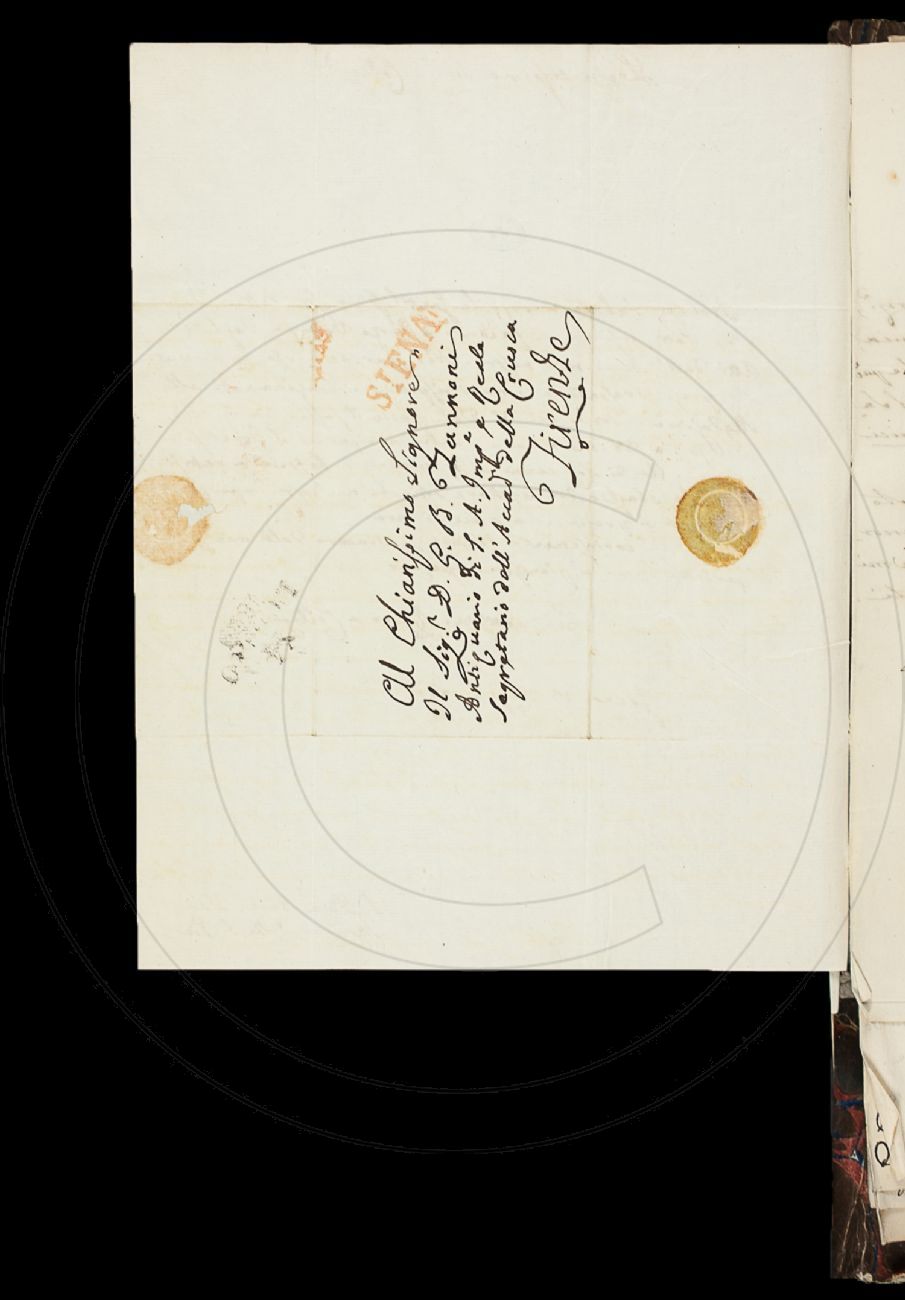 SIENA
Al Chiarissimo Signore
Il Sig.r D. G. B. Zannoni
Antiquario di S. A. Imp.e e Reale
Segretario dell'Accad.ia della Crusca
Firenze